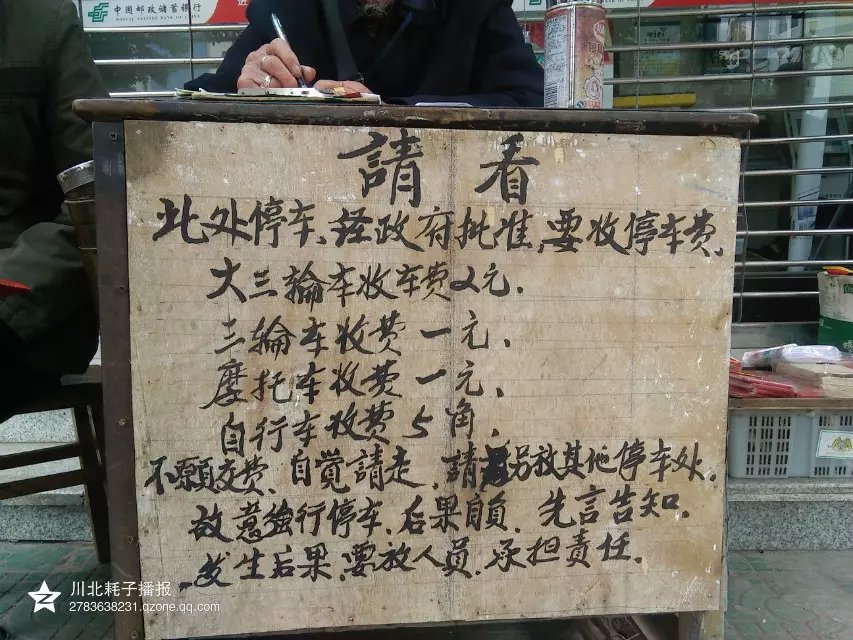 中国邮政储蓄银行
POSTAL SAVINGS BANK OF
請看
此处停车、经政府批准,要收停车费,
大三輪车收车费2元.
三輪车收费一元、
摩托车收费一元、
自行车收费5角,
不願交费、自觉請走,請另放其他停车处.
故意強行停车,后果自负.先言告知.
发生后果,要放人员,承担责任.
川北耗子播报
2783638231.qzone.qq.com